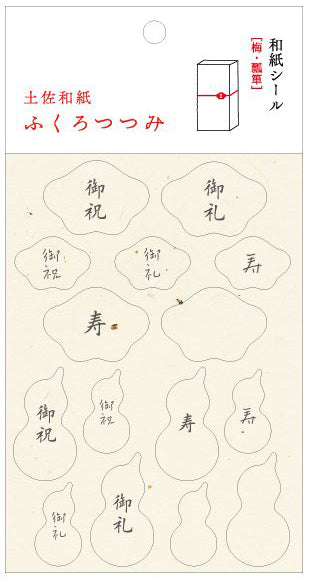 和紙シール
[梅・瓢箪]
土佐和紙
ふくろつつみ
御祝
御礼
御祝
御礼
寿
寿
御祝
御祝
寿
寿
御礼
御礼